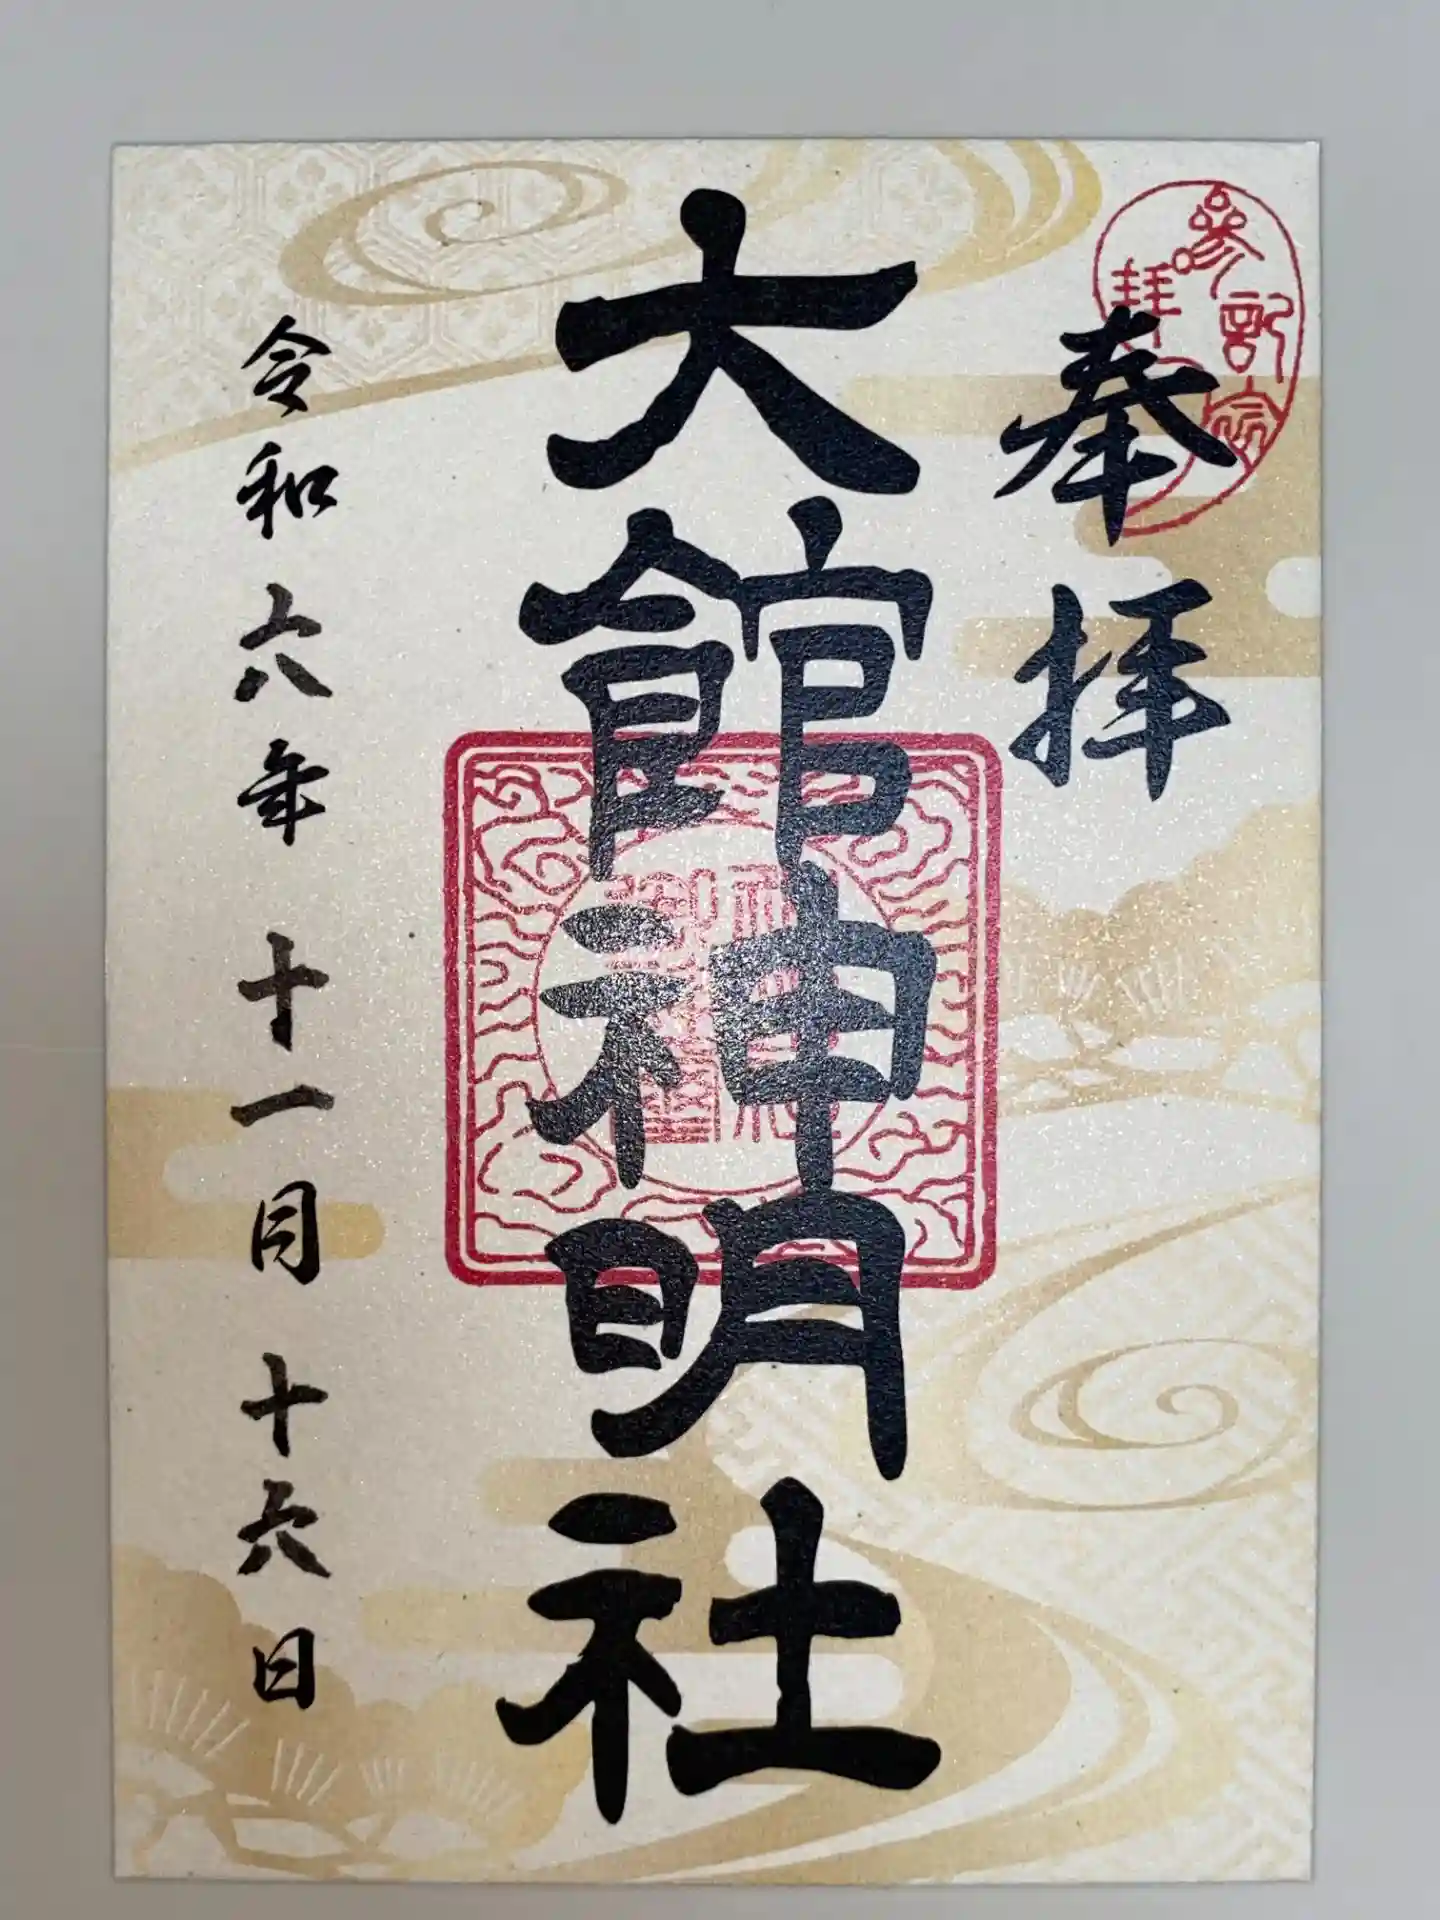 奉拝
大館神明社
令和六年十一月十六日